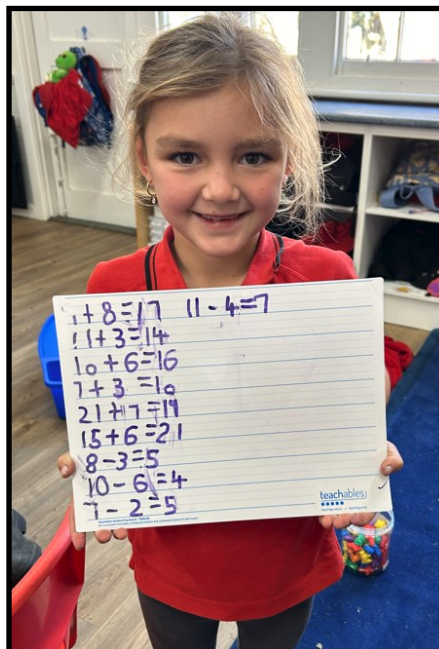 1+8=17 11-4=7
11+3=14
10+6=16
7+3=10
21+17=19
15+6=21
8-3=5
10-6=4
7-2=5
teachables